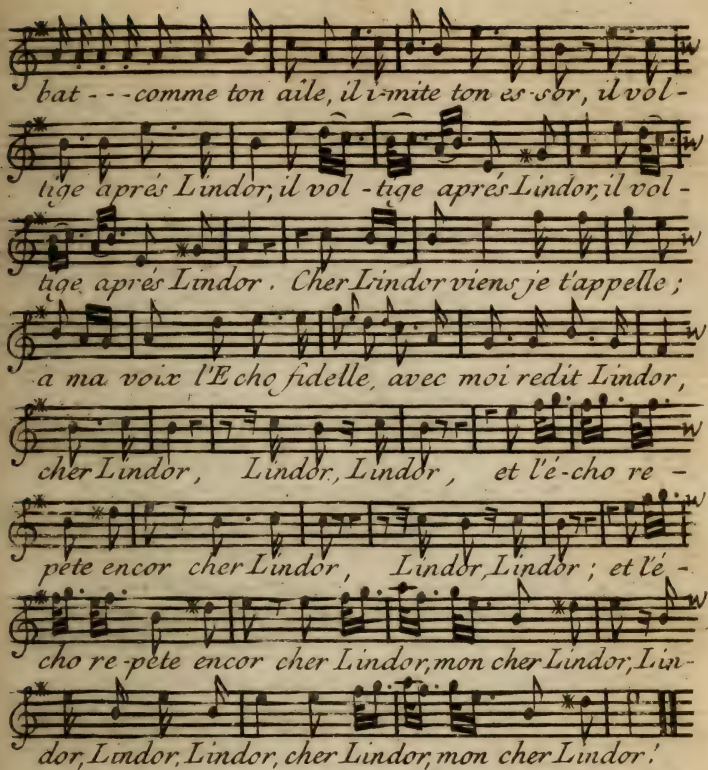 bat - - - comme ton aîle, il i-mite ton es-sor, il vol-
tige aprés Lindor, il vol-tige aprés Lindor, il vol-
tige aprés Lindor. Cher Lindor viens je t'appelle;
a ma voix l'Echo fidelle, avec moi redit Lindor,
cher Lindor, Lindor, Lindor, et l'é-cho re-
pete encor cher Lindor, Lindor, Lindor; et l'é-
cho re-pete encor cher Lindor, mon cher Lindor, Lin-
dor, Lindor, Lindor, cher Lindor, mon cher Lindor!